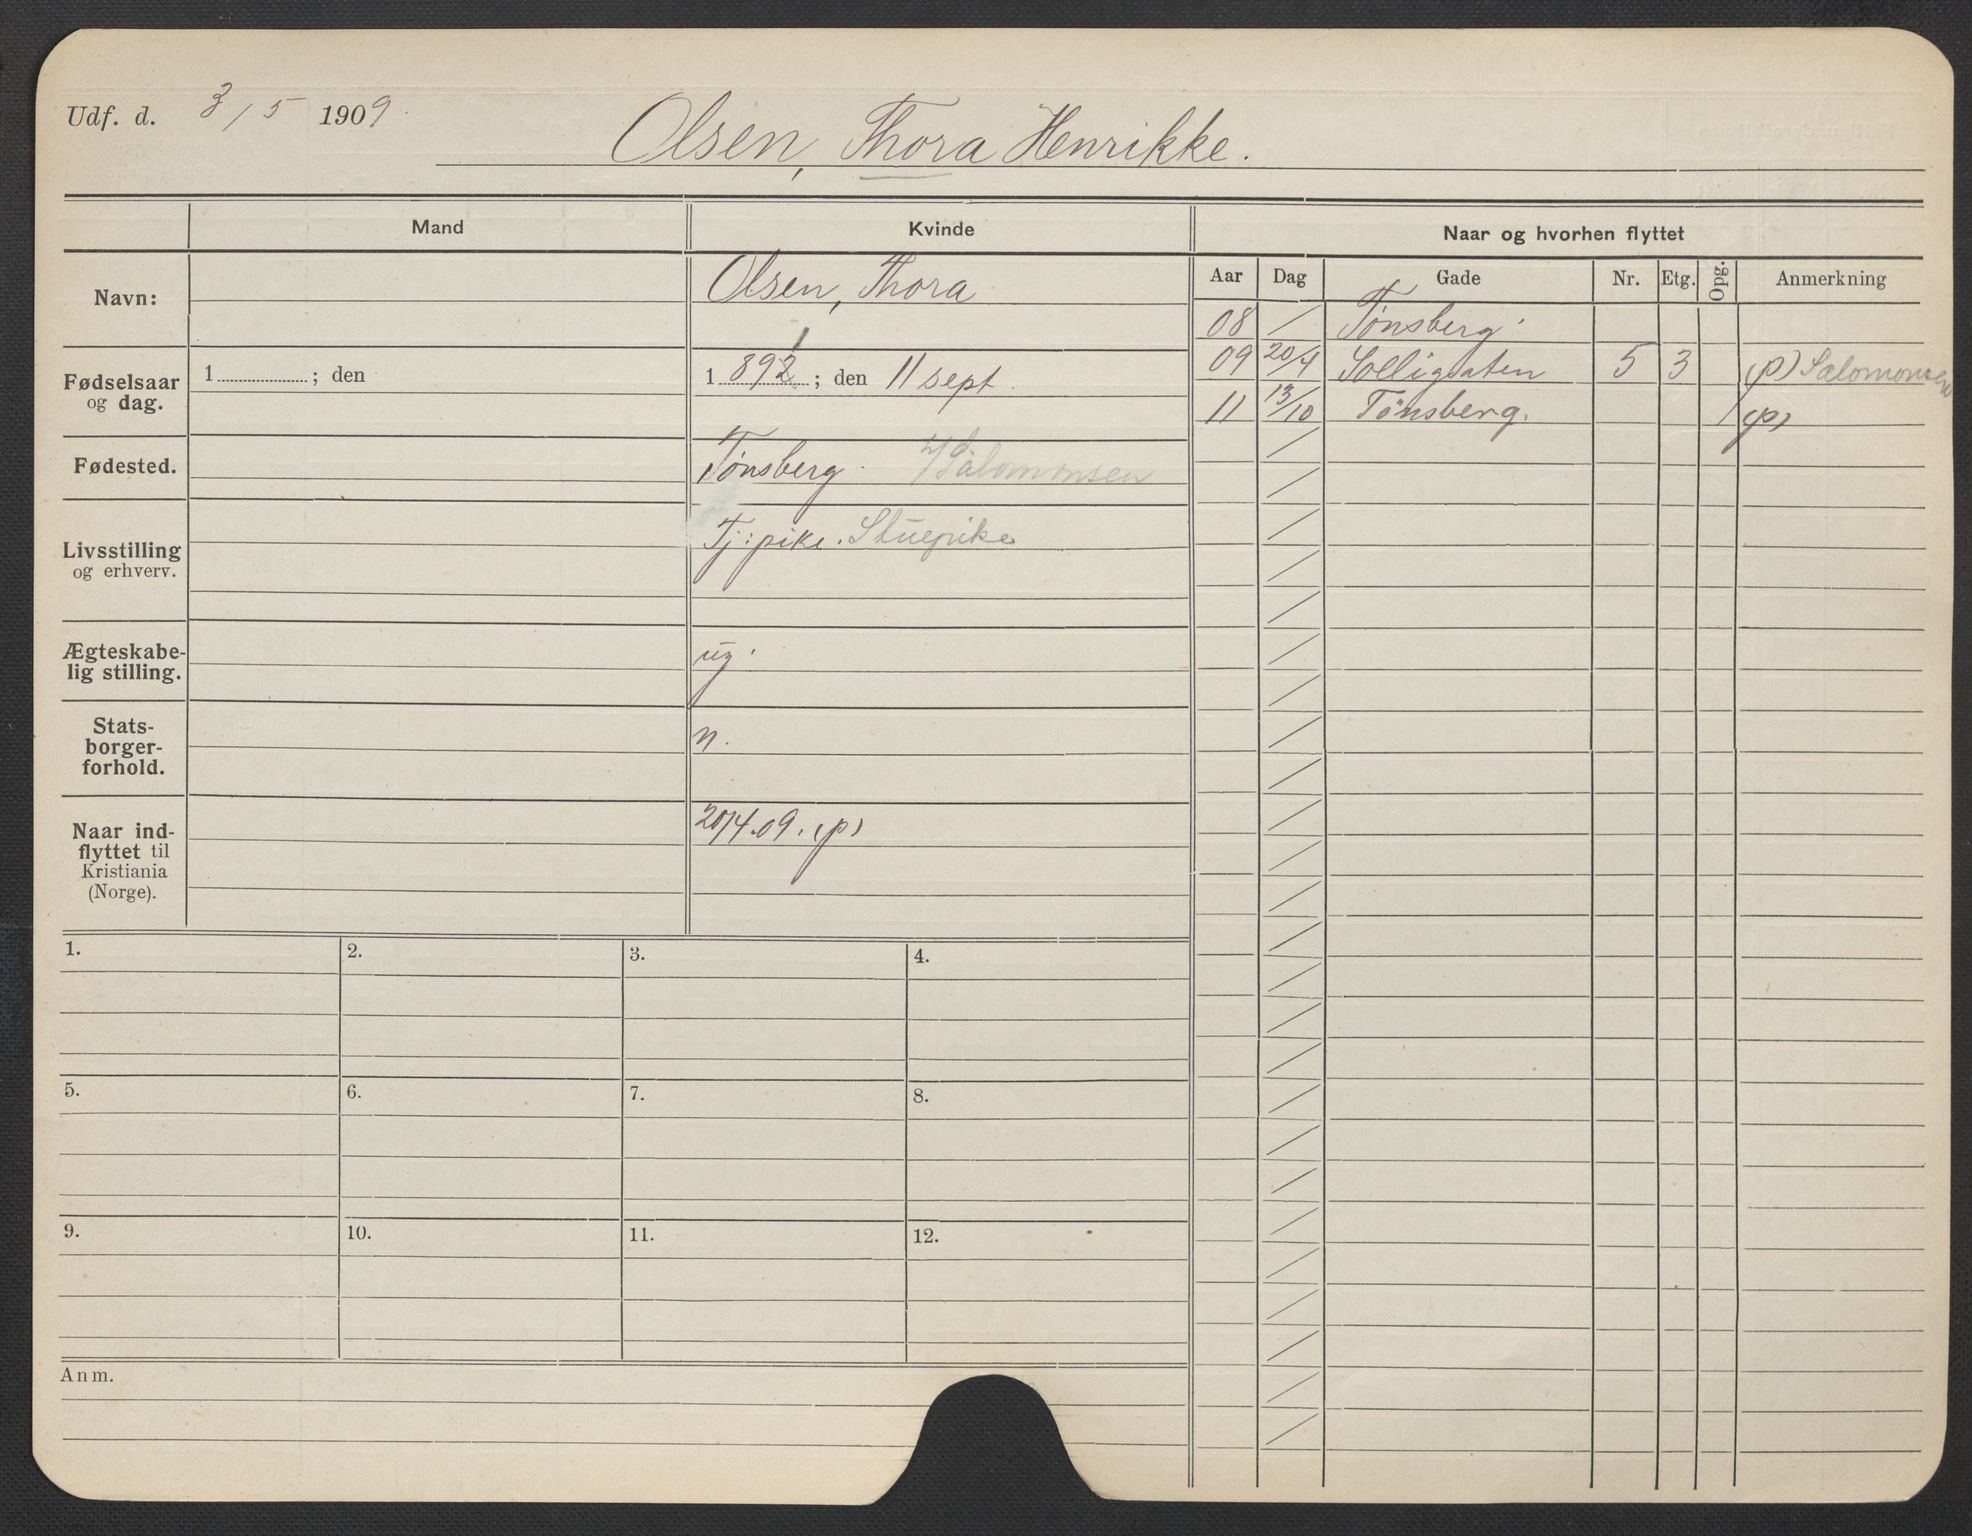 Udf. d. 3/5 1909.
Olsen, Thora Henrikke.
Mand
Kvinde
Naar og hvorhen flyttet
Aar Dag Gade Nr. Etg. Opg. Anmerkning
Navn:
Olsen, Thora
Fødselsaar
og dag.
1 ; den
1892 ; den 11 sept.
Fødested.
Tönsberg. Salomonsen
Livsstilling
og erhverv.
Tj: pike. Stuepike
Ægteskabe-
lig stilling.
ug.
Stats-
borger-
forhold.
n.
Naar ind-
flyttet til
Kristiania
(Norge).
20/4.09. (p)
08 / Tönsberg.
09 20/4 Solligaten 5 3 (p) Salomonsen
11 13/10 Tönsberg. (p)
1. 2. 3. 4.
5. 6. 7. 8.
9. 10. 11. 12.
Anm.